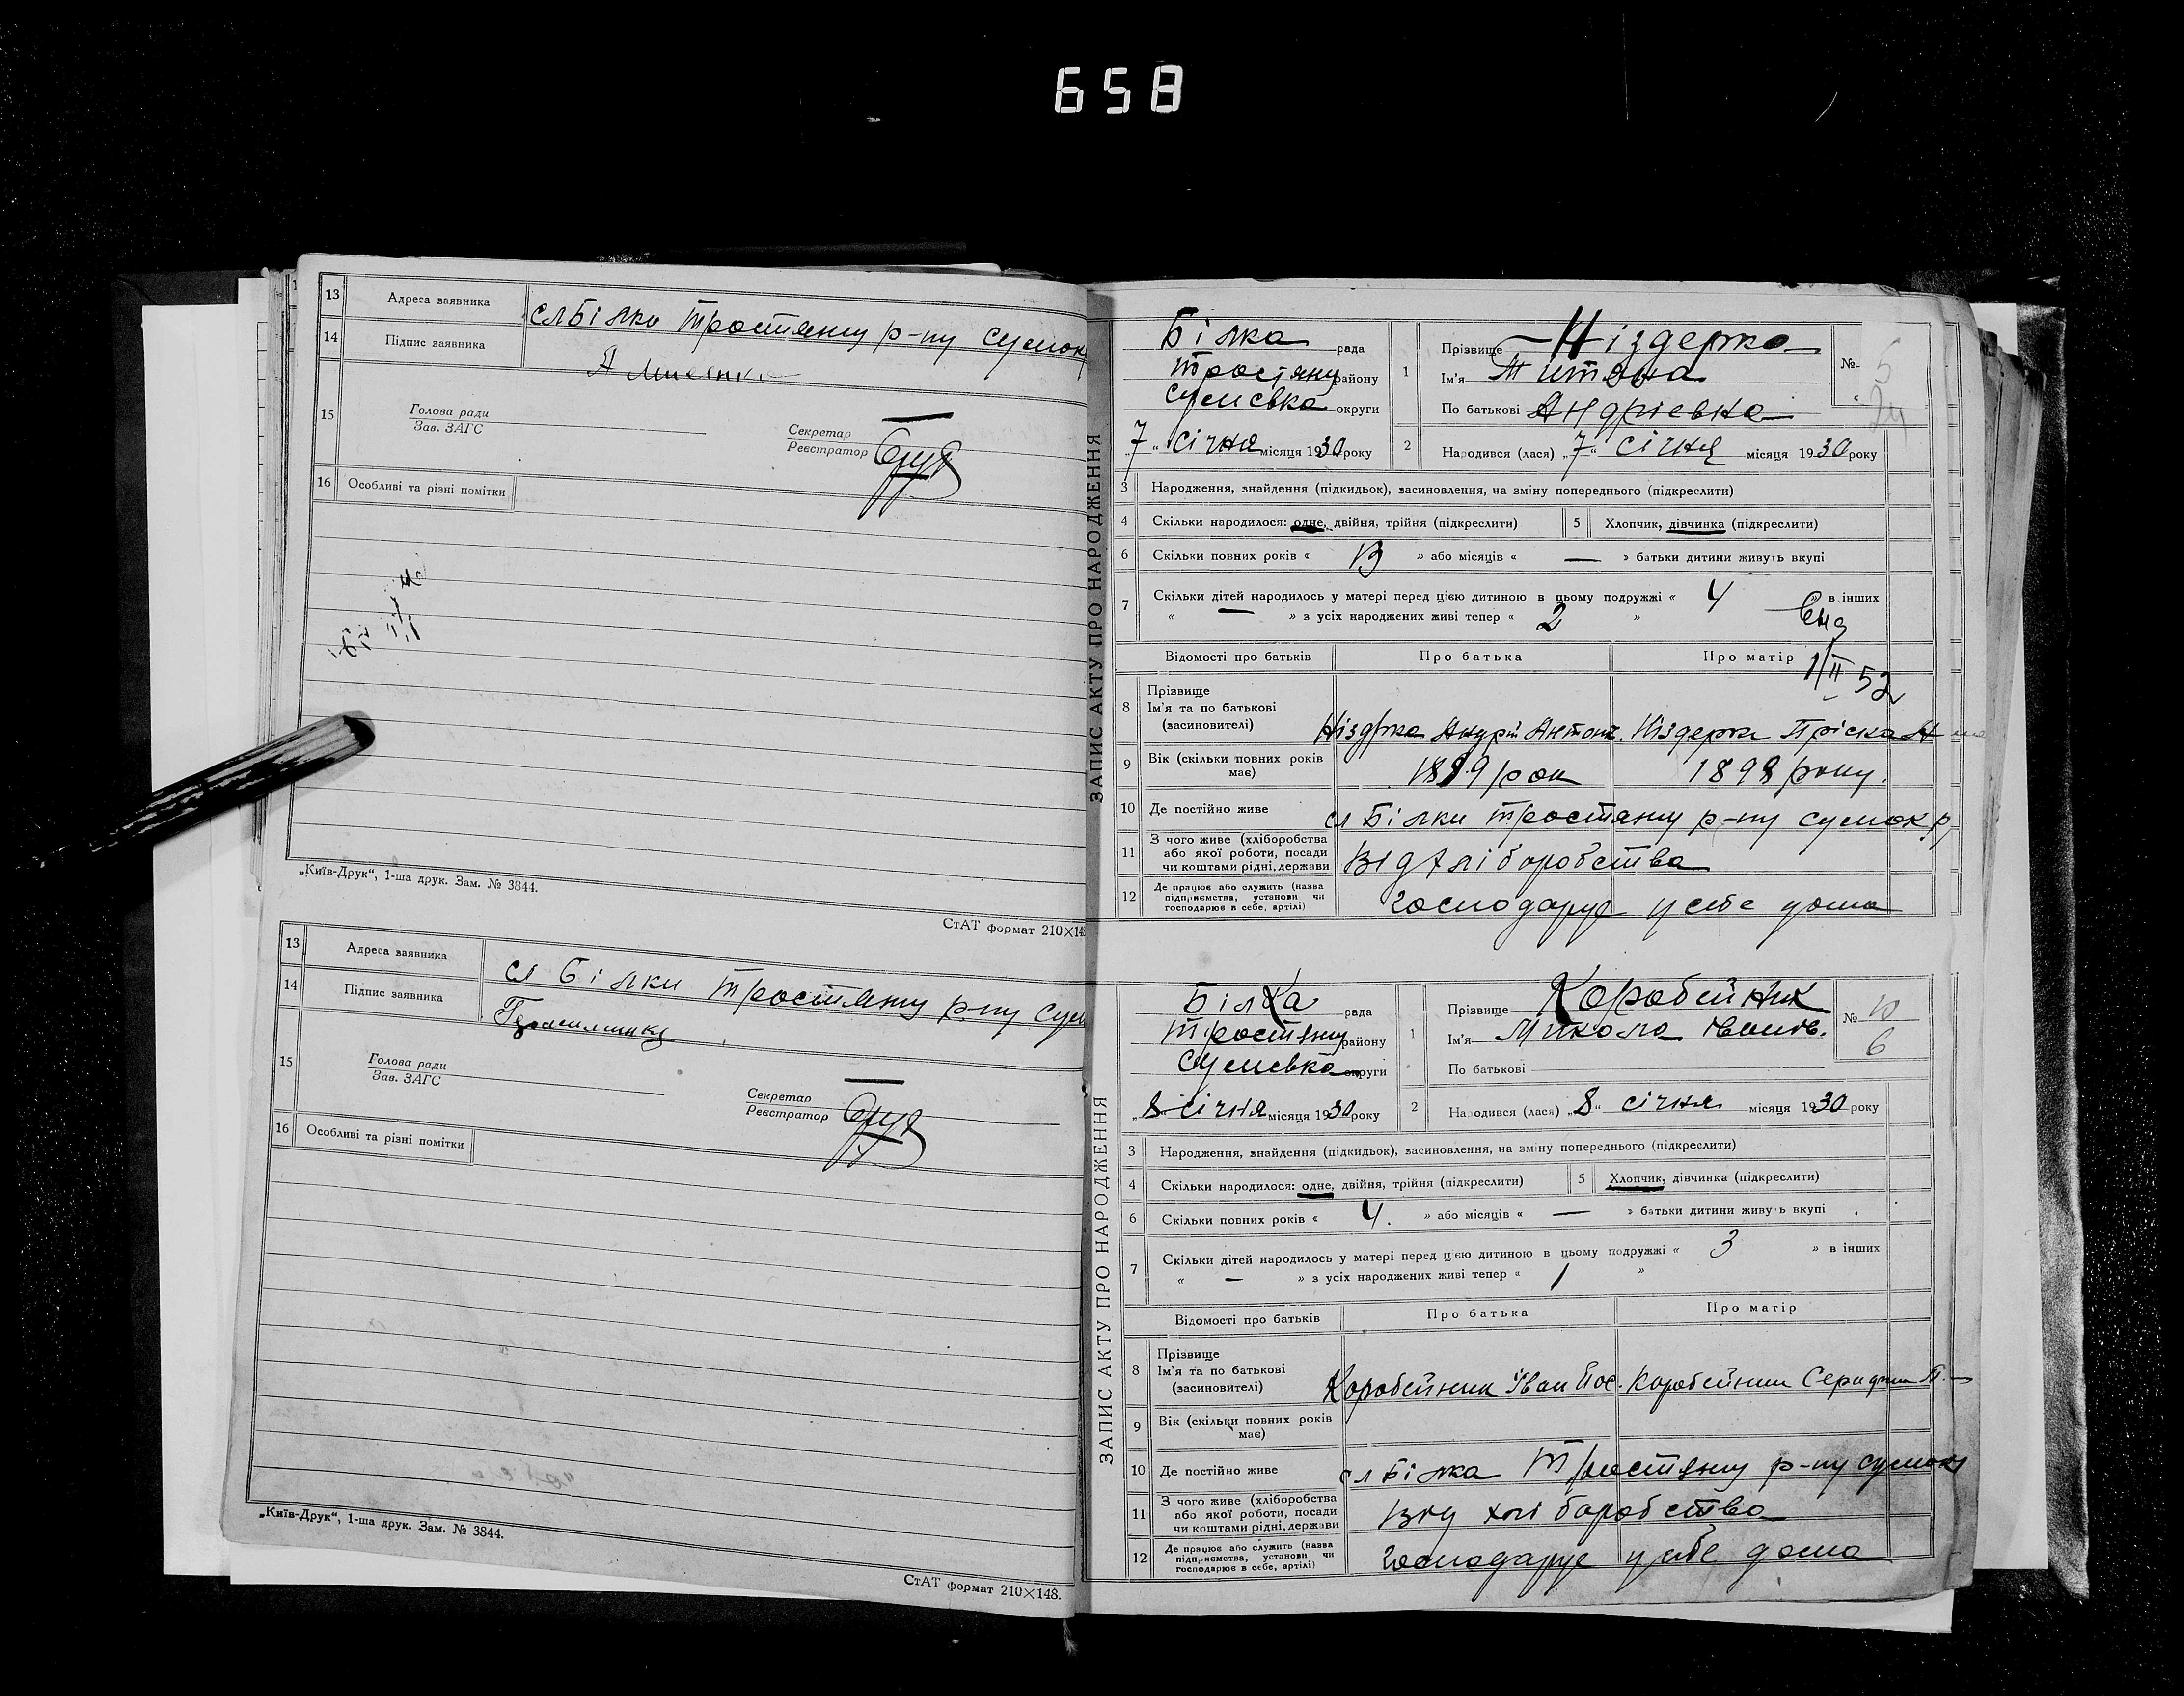 658
13 Адреса заявника сл Білки Тростяну р-ну Сумок
14 Підпис заявника
15 Голова ради
Зав. ЗАГС
Секретар
Реєстратор
16 Особливі та різні помітки
„Київ-Друк“, 1-ша друк. Зам. № 3844.
СтАТ формат 210×148
13 Адреса заявника сл Білки Тростяну р-ну Сум
14 Підпис заявника
15 Голова ради
Зав. ЗАГС
Секретар
Реєстратор
16 Особливі та різні помітки
„Київ-Друк“, 1-ша друк. Зам. № 3844.
СтАТ формат 210×148.
ЗАПИС АКТУ ПРО НАРОДЖЕННЯ
Білка рада
Тростяну району
Сумсвка округи
„7“ січня місяця 1930 року
1 Прізвище Ніздерка
Ім'я Митяна
По батькові Андрієвна
№ 5
2 Народився (лася) „7“ січня місяця 1930 року
3 Народження, знайдення (підкидьок), засиновлення, на зміну попереднього (підкреслити)
4 Скільки народилося: одне, двійня, трійня (підкреслити) 5 Хлопчик, дівчинка (підкреслити)
6 Скільки повних років « 13 » або місяців « — » батьки дитини живуть вкупі
7 Скільки дітей народилось у матері перед цією дитиною в цьому подружжі « 4 » в інших
« — » з усіх народжених живі тепер « 2 »
1/II 52
Відомості про батьків Про батька Про матір
8 Прізвище
Ім'я та по батькові
(засновителі) Ніздерка Андрій Антон. Ніздерка Пріска
9 Вік (скільки повних років має) 1899 рок 1898 року.
10 Де постійно живе сл Білки Тростяну р-ну Сумок р
11 З чого живе (хліборобства
або якої роботи, посади
чи коштами рідні, держави від хліборобства
12 Де працює або служить (назва
підприємства, установи чи
господарює в себе, артілі) господарує у себе дома
ЗАПИС АКТУ ПРО НАРОДЖЕННЯ
Білка рада
Тростяну району
Сумсвка округи
„8“ січня місяця 1930 року
1 Прізвище Коробейник
Ім'я Микола Іванів.
По батькові
№ 10
6
2 Народився (лася) „8“ січня місяця 1930 року
3 Народження, знайдення (підкидьок), засиновлення, на зміну попереднього (підкреслити)
4 Скільки народилося: одне, двійня, трійня (підкреслити) 5 Хлопчик, дівчинка (підкреслити)
6 Скільки повних років « 4. » або місяців « — » батьки дитини живуть вкупі
7 Скільки дітей народилось у матері перед цією дитиною в цьому подружжі « 3 » в інших
« — » з усіх народжених живі тепер « 1 »
Відомості про батьків Про батька Про матір
8 Прізвище
Ім'я та по батькові
(засиновителі) Коробейник Іван Йос. Коробейник
9 Вік (скільки повних років
має)
10 Де постійно живе сл Білка Тростяну р-ну Сумок
11 З чого живе (хліборобства
або якої роботи, посади
чи коштами рідні, держави від хліборобства
12 Де працює або служить (назва
підприємства, установи чи
господарює в себе, артілі) господарує у себе дома